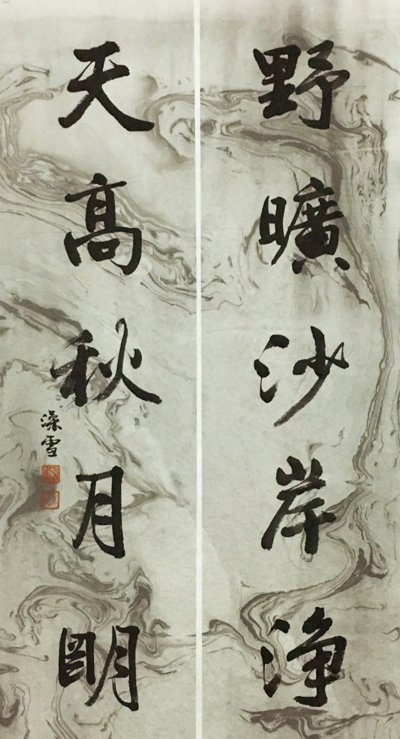 野曠沙岸淨
天高秋月明
深雪